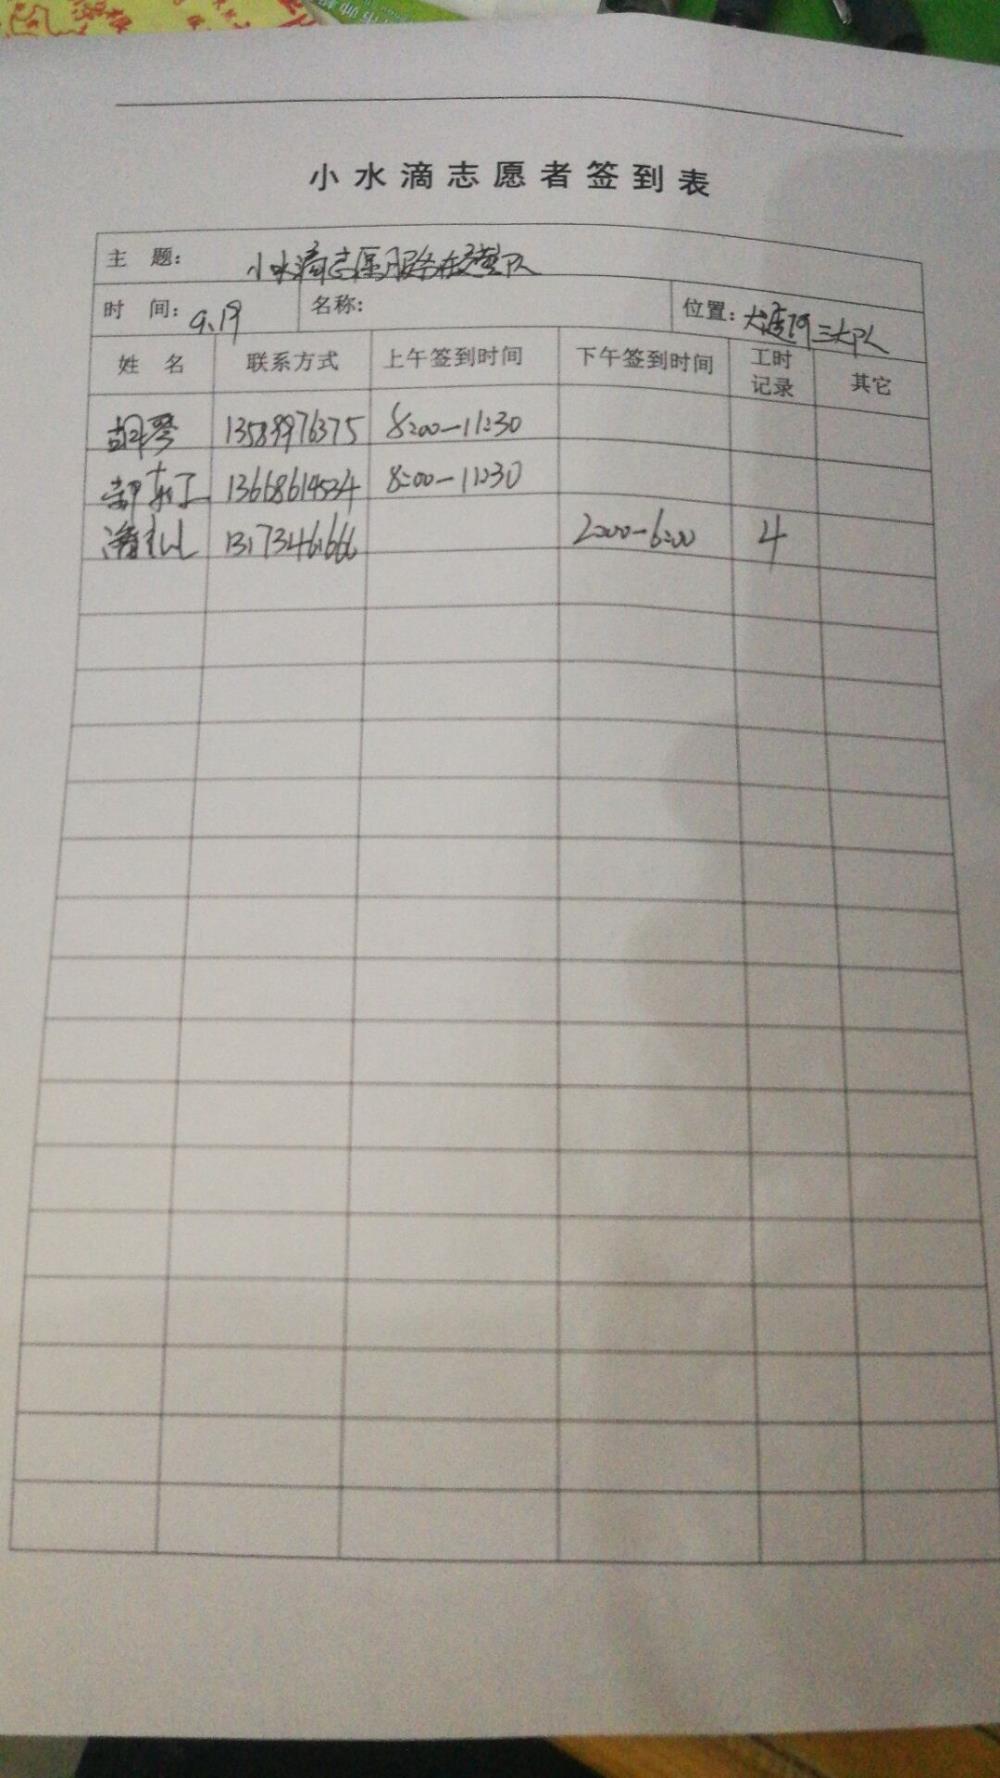 小水滴志愿者签到表
主 题： 小水滴志愿服务在交警队
时 间： 9.19 名称： 位置： 大三大队
姓 名 联系方式 上午签到时间 下午签到时间 工时记录 其它
胡琴 13589976375 8:00—11:30
13668614534 8:00—11:30
13173461666 2:00—6:00 4